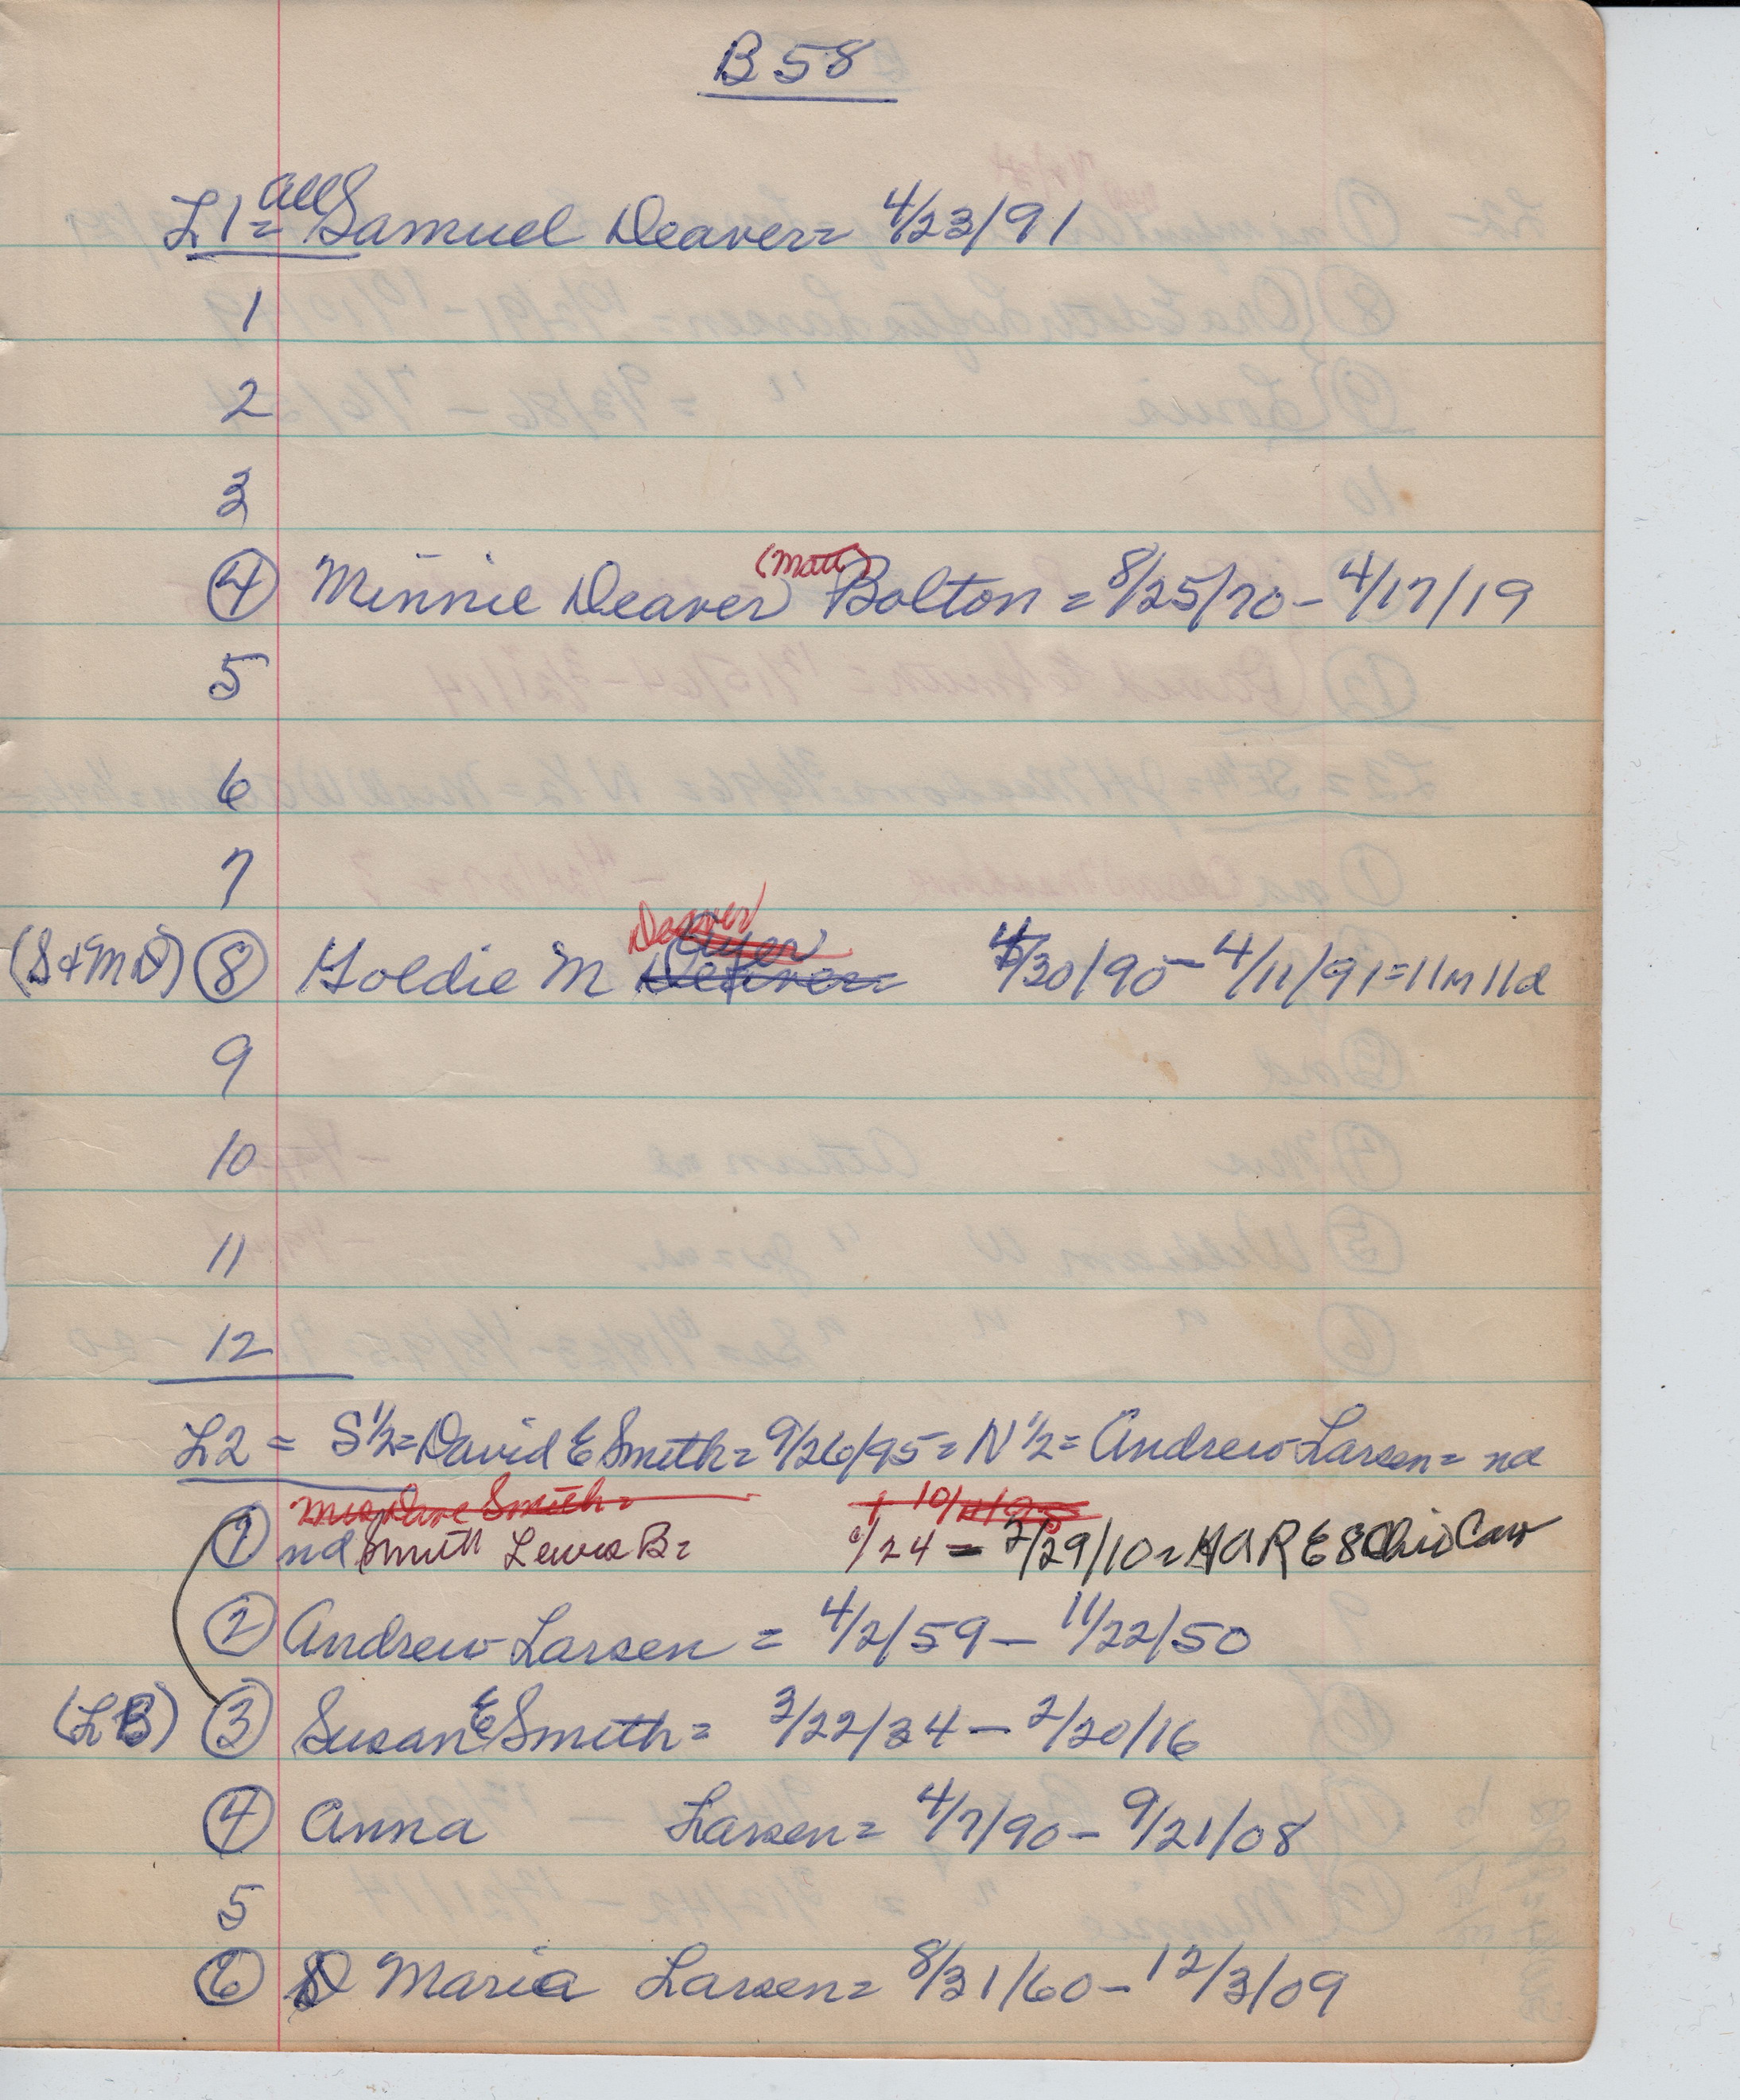 B 58
L1= all Samuel Deaver= 4/23/91
1
2
3
4 Minnie Deaver (Matt) Bolton = 8/25/70 - 4/17/19
5
6
7
Deaver
(S+MD) 8 Goldie M 4/30/90 - 4/11/91=11m11d
9
10
11
12
L2 = S 1/2= David E Smith= 9/26/95= N 1/2= Andrew Larsen= nd
Mrs Dave Smith= 10/11/25
1 nd Smith Lewis B= /24 - 2/29/10= GAR E8 Ohio Cav
2 Andrew Larsen = 4/2/59 - 11/22/50
(LB) 3 Susan E Smith= 3/22/34 - 2/20/16
4 Anna Larsen= 4/7/90 - 9/21/08
5
6 Maria Larsen= 8/31/60 - 12/3/09